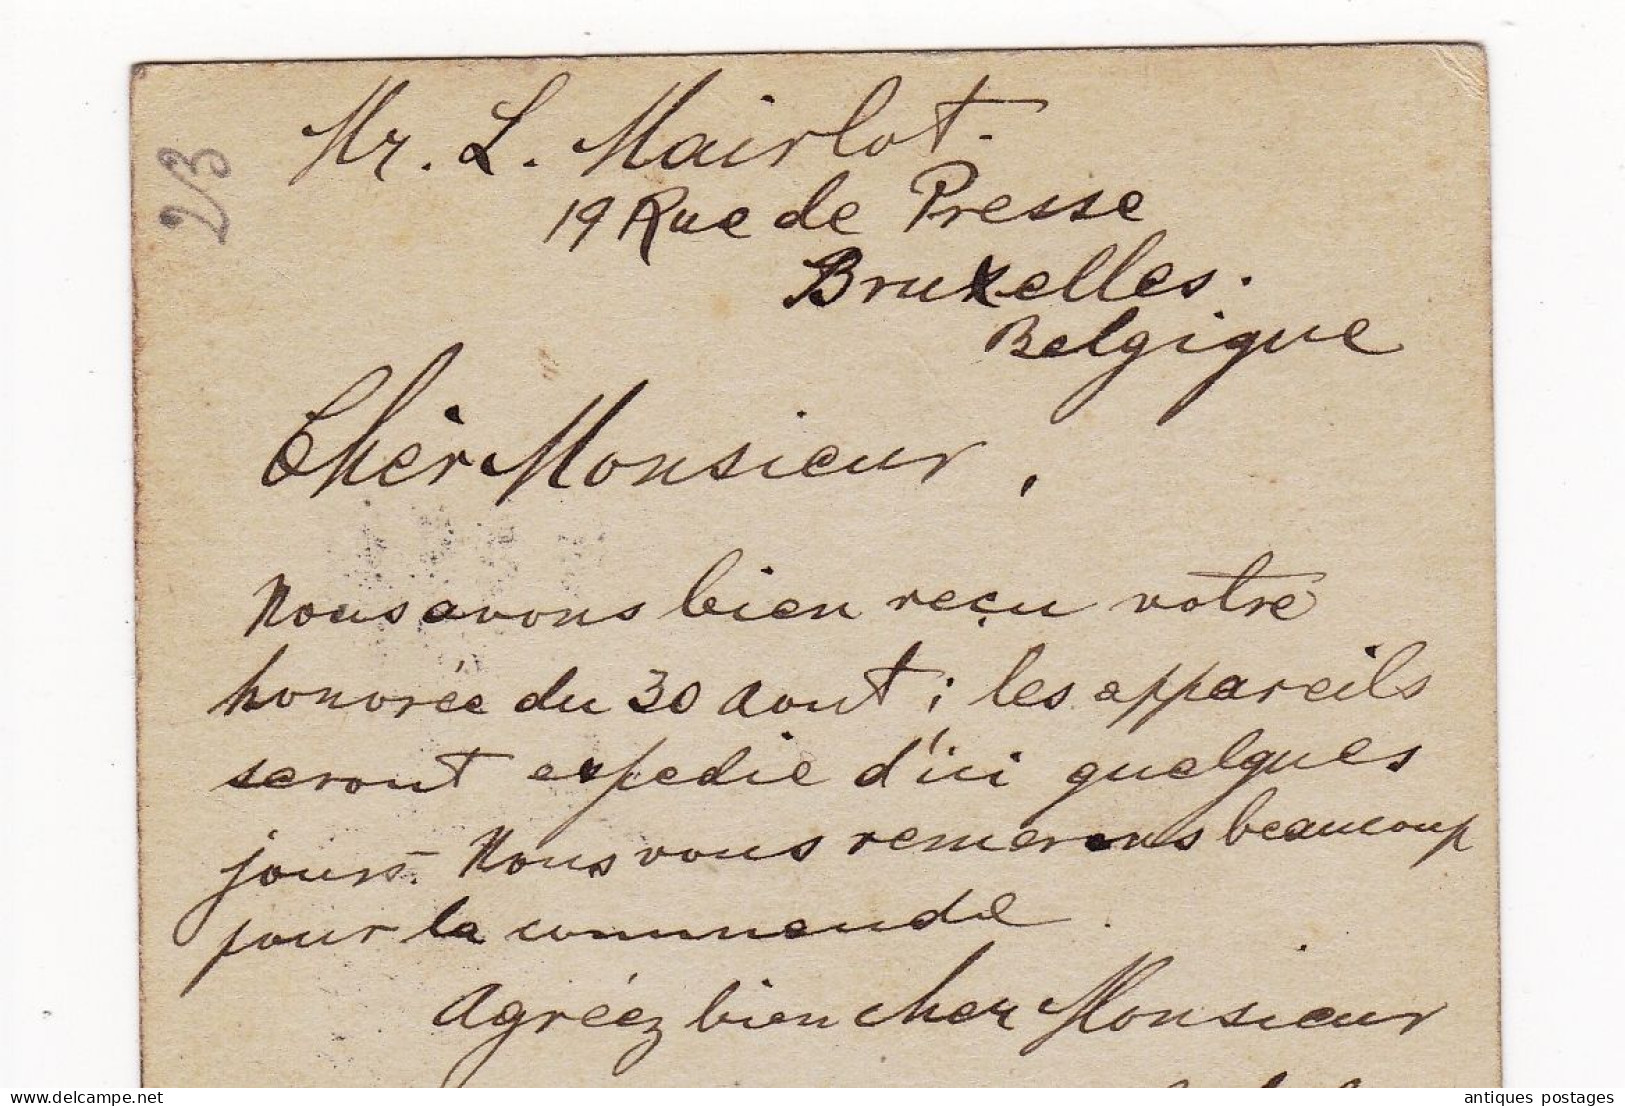 23
Mr. L. Mairlot.
19 Rue de Presse
Bruxelles.
Belgique
Chèr Monsieur,
Nous avons bien reçu votre
honorée du 30 aout; les appareils
seront expedie d'ici quelques
jours. Nous vous remercons beaucoup
pour la commende.
Agréez bien cher Monsieur
delcampe.net
antiques postages